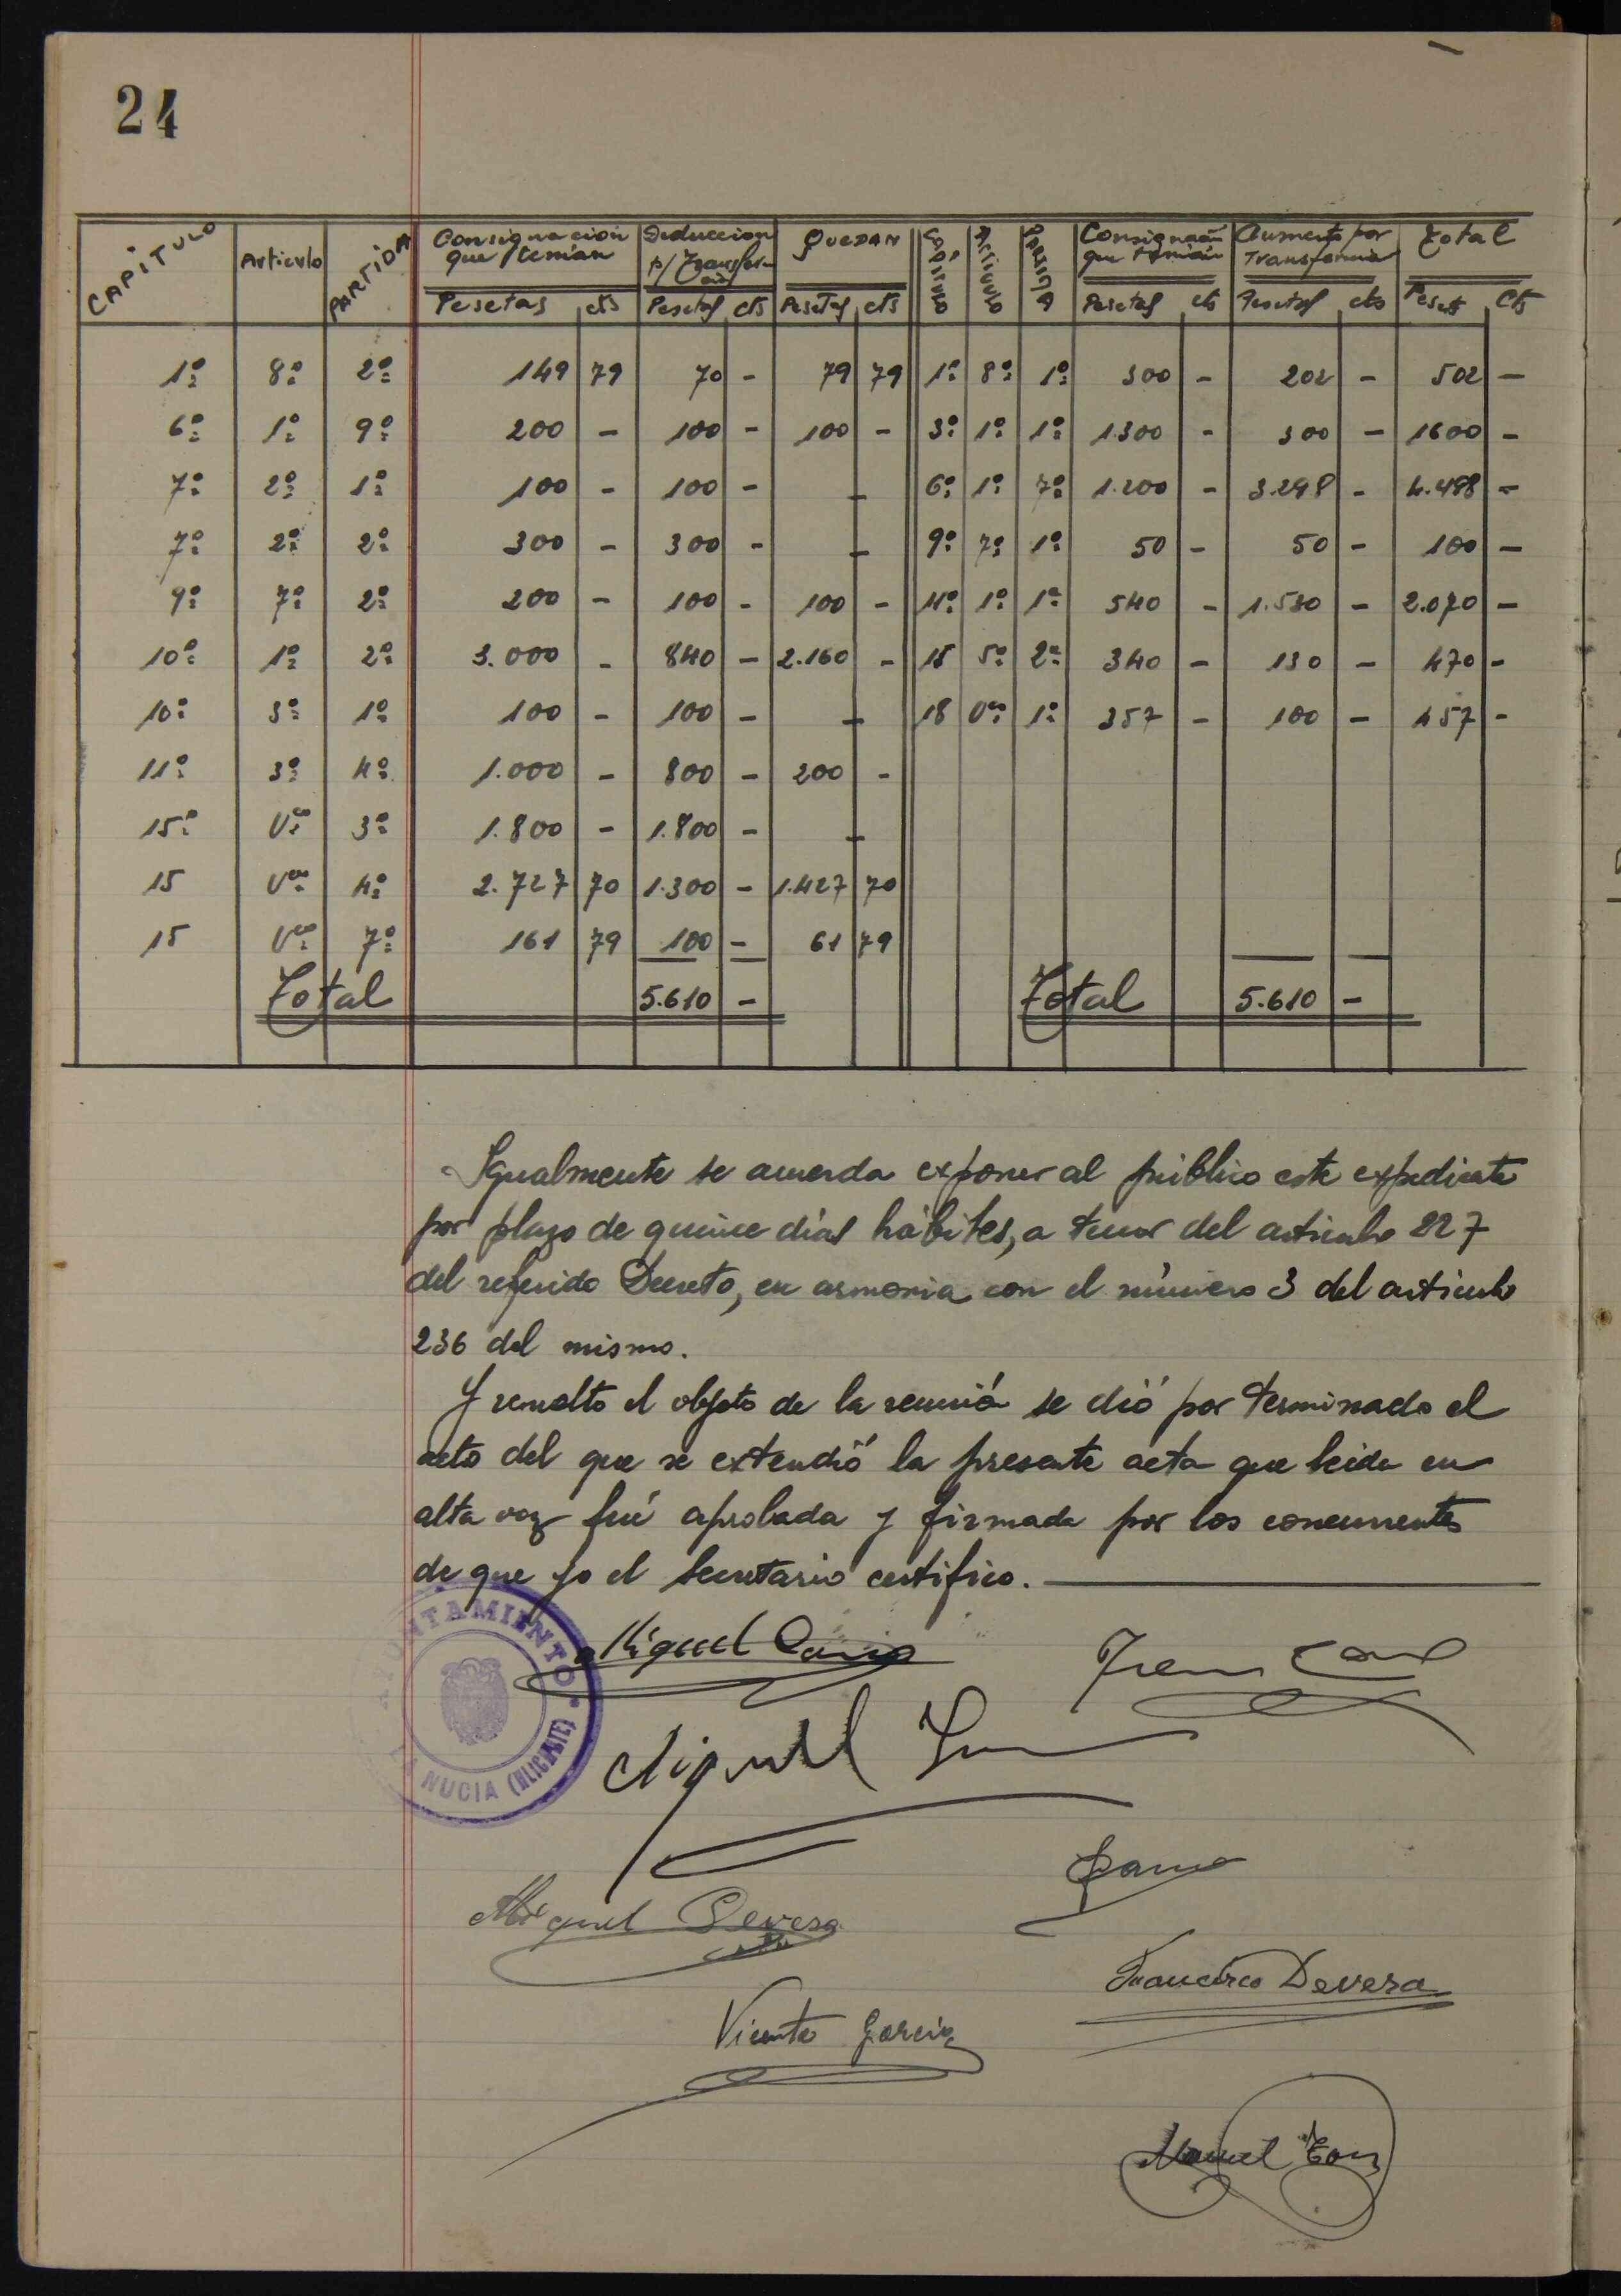 24
CAPITULO Articulo PARTIDA Consignacion que tenian Deduccion p/ Transferencia QUEDAN CAPITULO ARTICULO PARTIDA Consignación que tenian Aumento por Transferencia Total
Pesetas cts Pesetas cts Pesetas cts Pesetas cts Pesetas cts Pesets cts
1º 8º 2º 149 79 70 - 79 79 1º 8º 1º 300 - 202 - 502 -
6º 1º 9º 200 - 100 - 100 - 3º 1º 1º 1.300 - 300 - 1600 -
7º 2º 1º 100 - 100 - - 6º 1º 7º 1.200 - 3.298 - 4.498 -
7º 2º 2º 300 - 300 - - 9º 7º 1º 50 - 50 - 100 -
9º 7º 2º 200 - 100 - 100 - 11º 1º 1º 540 - 1.530 - 2.070 -
10º 1º 2º 3.000 - 840 - 2.160 - 18 5º 2º 340 - 130 - 470 -
10º 3º 1º 100 - 100 - - 18 Uco 1º 357 - 100 - 457 -
11º 3º 4º 1.000 - 800 - 200 -
15º Uco 3º 1.800 - 1.800 - -
15 Uco 4º 2.727 70 1.300 - 1.427 70
15 Uco 7º 161 79 100 - 61 79
Total 5.610 - Total 5.610 -
Igualmente se acuerda exponer al público este expediente
por plazo de quince días hábiles, a tenor del articulo 227
del referido Decreto, en armonia con el número 3 del articulo
236 del mismo.
Y resuelto el objeto de la reunión se dió por terminado el
acto del que se extendió la presente acta que leida en
alta voz fué aprobada y firmada por los concurrentes
de que yo el Secretario certifico.
AYUNTAMIENTO
LA NUCIA (ALICANTE)
Miguel Cano
Miguel
Miguel Devesa
Francisco Devesa
Vicente Garcia
Manuel